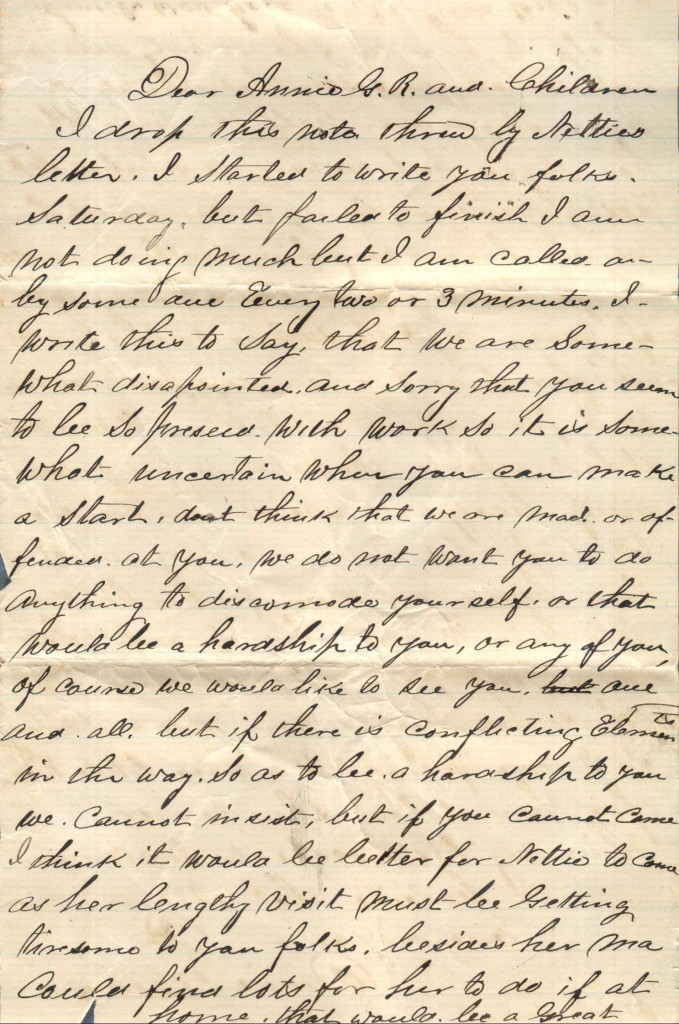 Dear Annie G. R. and. Children
I drop this note threw by Netties
letter. I started to write you folks.
Saturday. but failed to finish I am
not doing much but I am called. on-
by some one Every two or 3 minutes. I-
write this to say, that we are Some-
what disapointed. and sorry that you seem
to be so presed. with work so it is some-
what uncertain when you can make
a start, dont think that we are mad. or of-
fended. at you, we do not want you to do
anything to discomode yourself. or that
would be a hardship to you, or any of you,
of course we would like to see you. but one
and. all. but if there is conflicting Elements
in the way. So as to be. a hardship to you
we. Cannot insist, but if you cannot come
I think it would be better for Nettie to come
as her lengthy visit must be Getting
tiresome to you folks. besides her ma
Could find lots for her to do if at
home. that would. be a Great